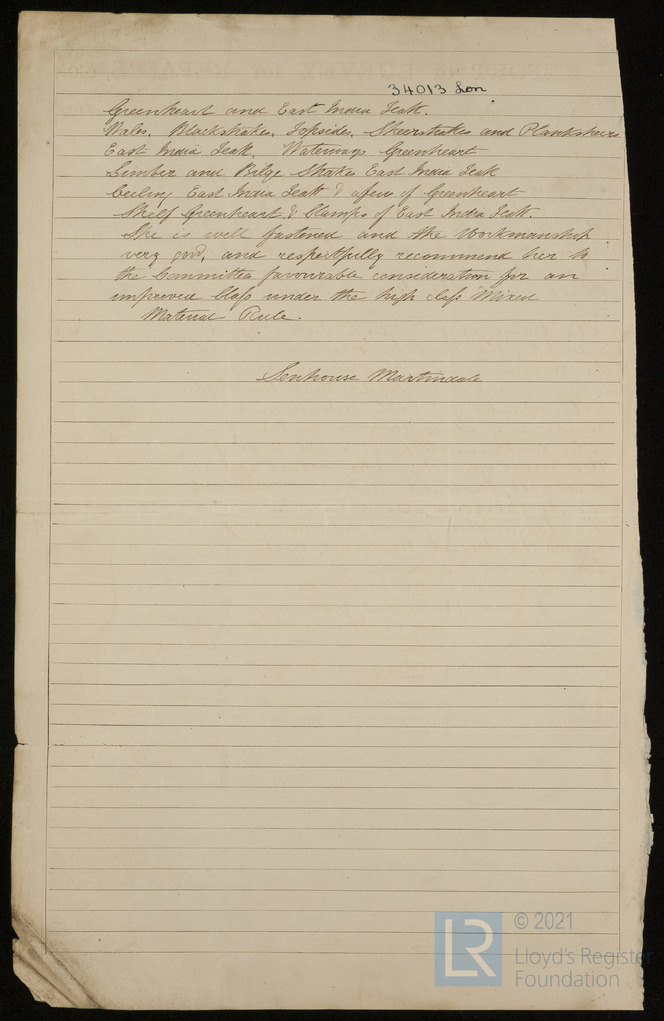 34013 Lon
Greenheart and East India Teak.
Wales, Blackstrakes, Topsides, Sheerstrakes and Plankshears
East India Teak, Waterways Greenheart
Limber and Bilge Strakes East India Teak
Ceiling East India Teak & a few of Greenheart
Shelf Greenheart & Clamps of East India Teak.
She is well fastened and the Workmanship
very good, and respectfully recommend her to
the Committee favourable consideration for an
improved Class under the high class "Mixed
Material Rule.
Senhouse Martindale
LR
© 2021
Lloyd's Register
Foundation